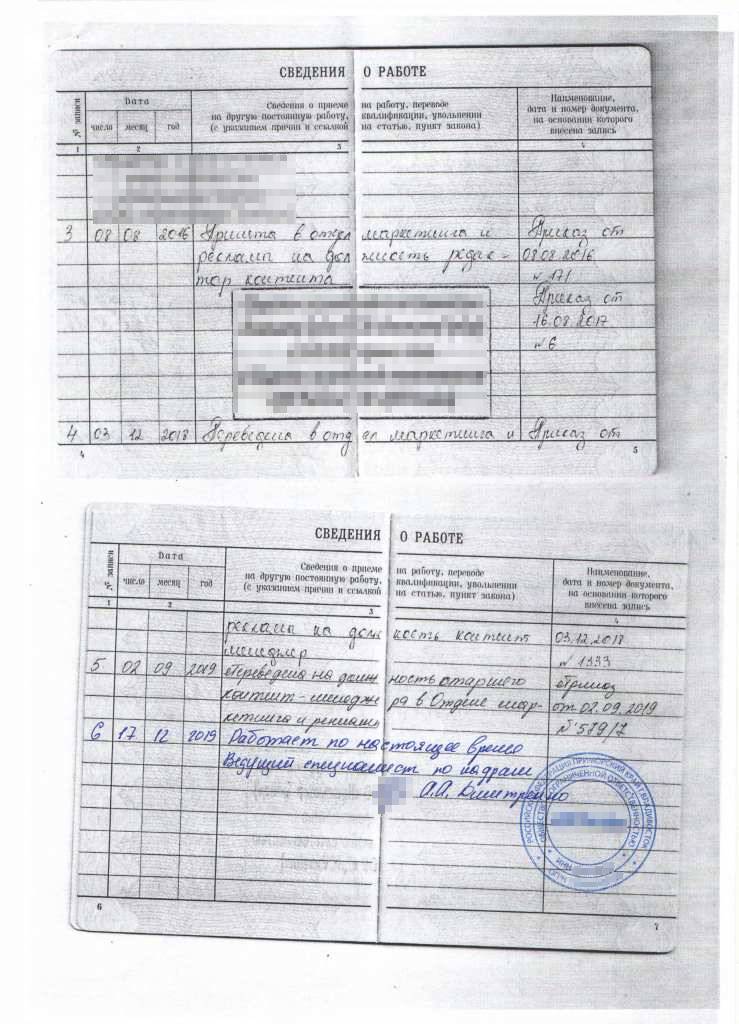 СВЕДЕНИЯ О РАБОТЕ
№ записи
Дата
число месяц год
Сведения о приеме на работу, переводе
на другую постоянную работу, квалификации, увольнении
(с указанием причин и ссылкой на статью, пункт закона)
Наименование,
дата и номер документа,
на основании которого
внесена запись
1 2 3 4
3 08 08 2016 Принята в отдел маркетинга и Приказ от
рекламы на должность редак- 08.08.2016
тор контента №171
Приказ от
16.08.2017
№6
4 03 12 2018 Переведена в отдел маркетинга и Приказ от
4 5
СВЕДЕНИЯ О РАБОТЕ
№ записи
Дата
число месяц год
Сведения о приеме на работу, переводе
на другую постоянную работу, квалификации, увольнении
(с указанием причин и ссылкой на статью, пункт закона)
Наименование,
дата и номер документа,
на основании которого
внесена запись
1 2 3 4
рекламы на должность контент 03.12.2018
менеджер №1333
5. 02 09 2019 Переведена на должность старшего Приказ
контент-менеджера в Отделе мар- от 02.09.2019
кетинга и рекламы №589/7
6 17 12 2019 Работает по настоящее время
Ведущий специалист по кадрам
А.А. Дмитренко
РОССИЙСКАЯ ФЕДЕРАЦИЯ ПРИМОРСКИЙ КРАЙ Г.ВЛАДИВОСТОК
ОБЩЕСТВО С ОГРАНИЧЕННОЙ ОТВЕТСТВЕННОСТЬЮ
ИНН
ОГРН
6 7